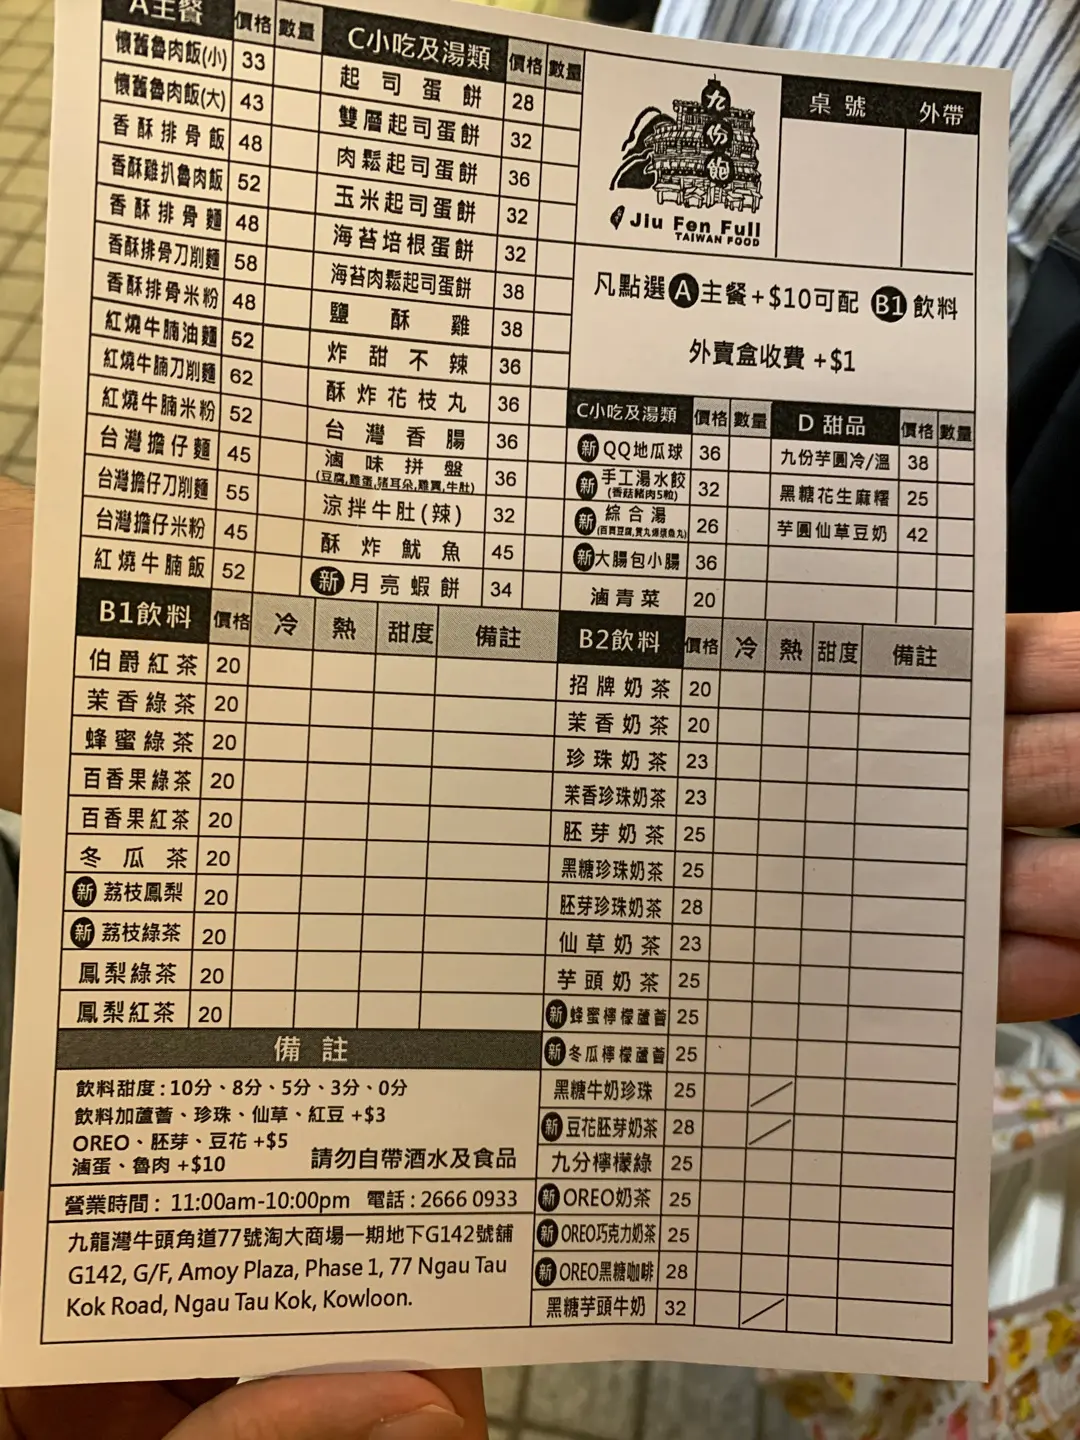 A主餐 價格 數量
懷舊魯肉飯(小) 33
懷舊魯肉飯(大) 43
香酥排骨飯 48
香酥雞扒魯肉飯 52
香酥排骨麵 48
香酥排骨刀削麵 58
香酥排骨米粉 48
紅燒牛腩油麵 52
紅燒牛腩刀削麵 62
紅燒牛腩米粉 52
台灣擔仔麵 45
台灣擔仔刀削麵 55
台灣擔仔米粉 45
紅燒牛腩飯 52
C小吃及湯類 價格 數量
起司蛋餅 28
雙層起司蛋餅 32
肉鬆起司蛋餅 36
玉米起司蛋餅 32
海苔培根蛋餅 32
海苔肉鬆起司蛋餅 38
鹽酥雞 38
炸甜不辣 36
酥炸花枝丸 36
台灣香腸 36
滷味拼盤 36
(豆腐,雞蛋,豬耳朵,雞翼,牛肚)
涼拌牛肚(辣) 32
酥炸魷魚 45
新 月亮蝦餅 34
九份飽
Jiu Fen Full
TAIWAN FOOD
桌號 外帶
凡點選A主餐+$10可配 B1飲料
外賣盒收費 +$1
C小吃及湯類 價格 數量
新 QQ地瓜球 36
新 手工湯水餃 32
(香菇豬肉5粒)
新 綜合湯 26
新 大腸包小腸 36
滷青菜 20
D 甜品 價格 數量
九份芋圓冷/溫 38
黑糖花生麻糬 25
芋圓仙草豆奶 42
B1飲料 價格 冷 熱 甜度 備註
伯爵紅茶 20
茉香綠茶 20
蜂蜜綠茶 20
百香果綠茶 20
百香果紅茶 20
冬瓜茶 20
新 荔枝鳳梨 20
新 荔枝綠茶 20
鳳梨綠茶 20
鳳梨紅茶 20
B2飲料 價格 冷 熱 甜度 備註
招牌奶茶 20
茉香奶茶 20
珍珠奶茶 23
茉香珍珠奶茶 23
胚芽奶茶 25
黑糖珍珠奶茶 25
胚芽珍珠奶茶 28
仙草奶茶 23
芋頭奶茶 25
新 蜂蜜檸檬蘆薈 25
新 冬瓜檸檬蘆薈 25
黑糖牛奶珍珠 25
新 豆花胚芽奶茶 28
九分檸檬綠 25
新 OREO奶茶 25
新 OREO巧克力奶茶 25
新 OREO黑糖咖啡 28
黑糖芋頭牛奶 32
備註
飲料甜度:10分、8分、5分、3分、0分
飲料加蘆薈、珍珠、仙草、紅豆 +$3
OREO、胚芽、豆花 +$5
滷蛋、魯肉 +$10 請勿自帶酒水及食品
營業時間: 11:00am-10:00pm 電話:2666 0933
九龍灣牛頭角道77號淘大商場一期地下G142號舖
G142, G/F, Amoy Plaza, Phase 1, 77 Ngau Tau
Kok Road, Ngau Tau Kok, Kowloon.